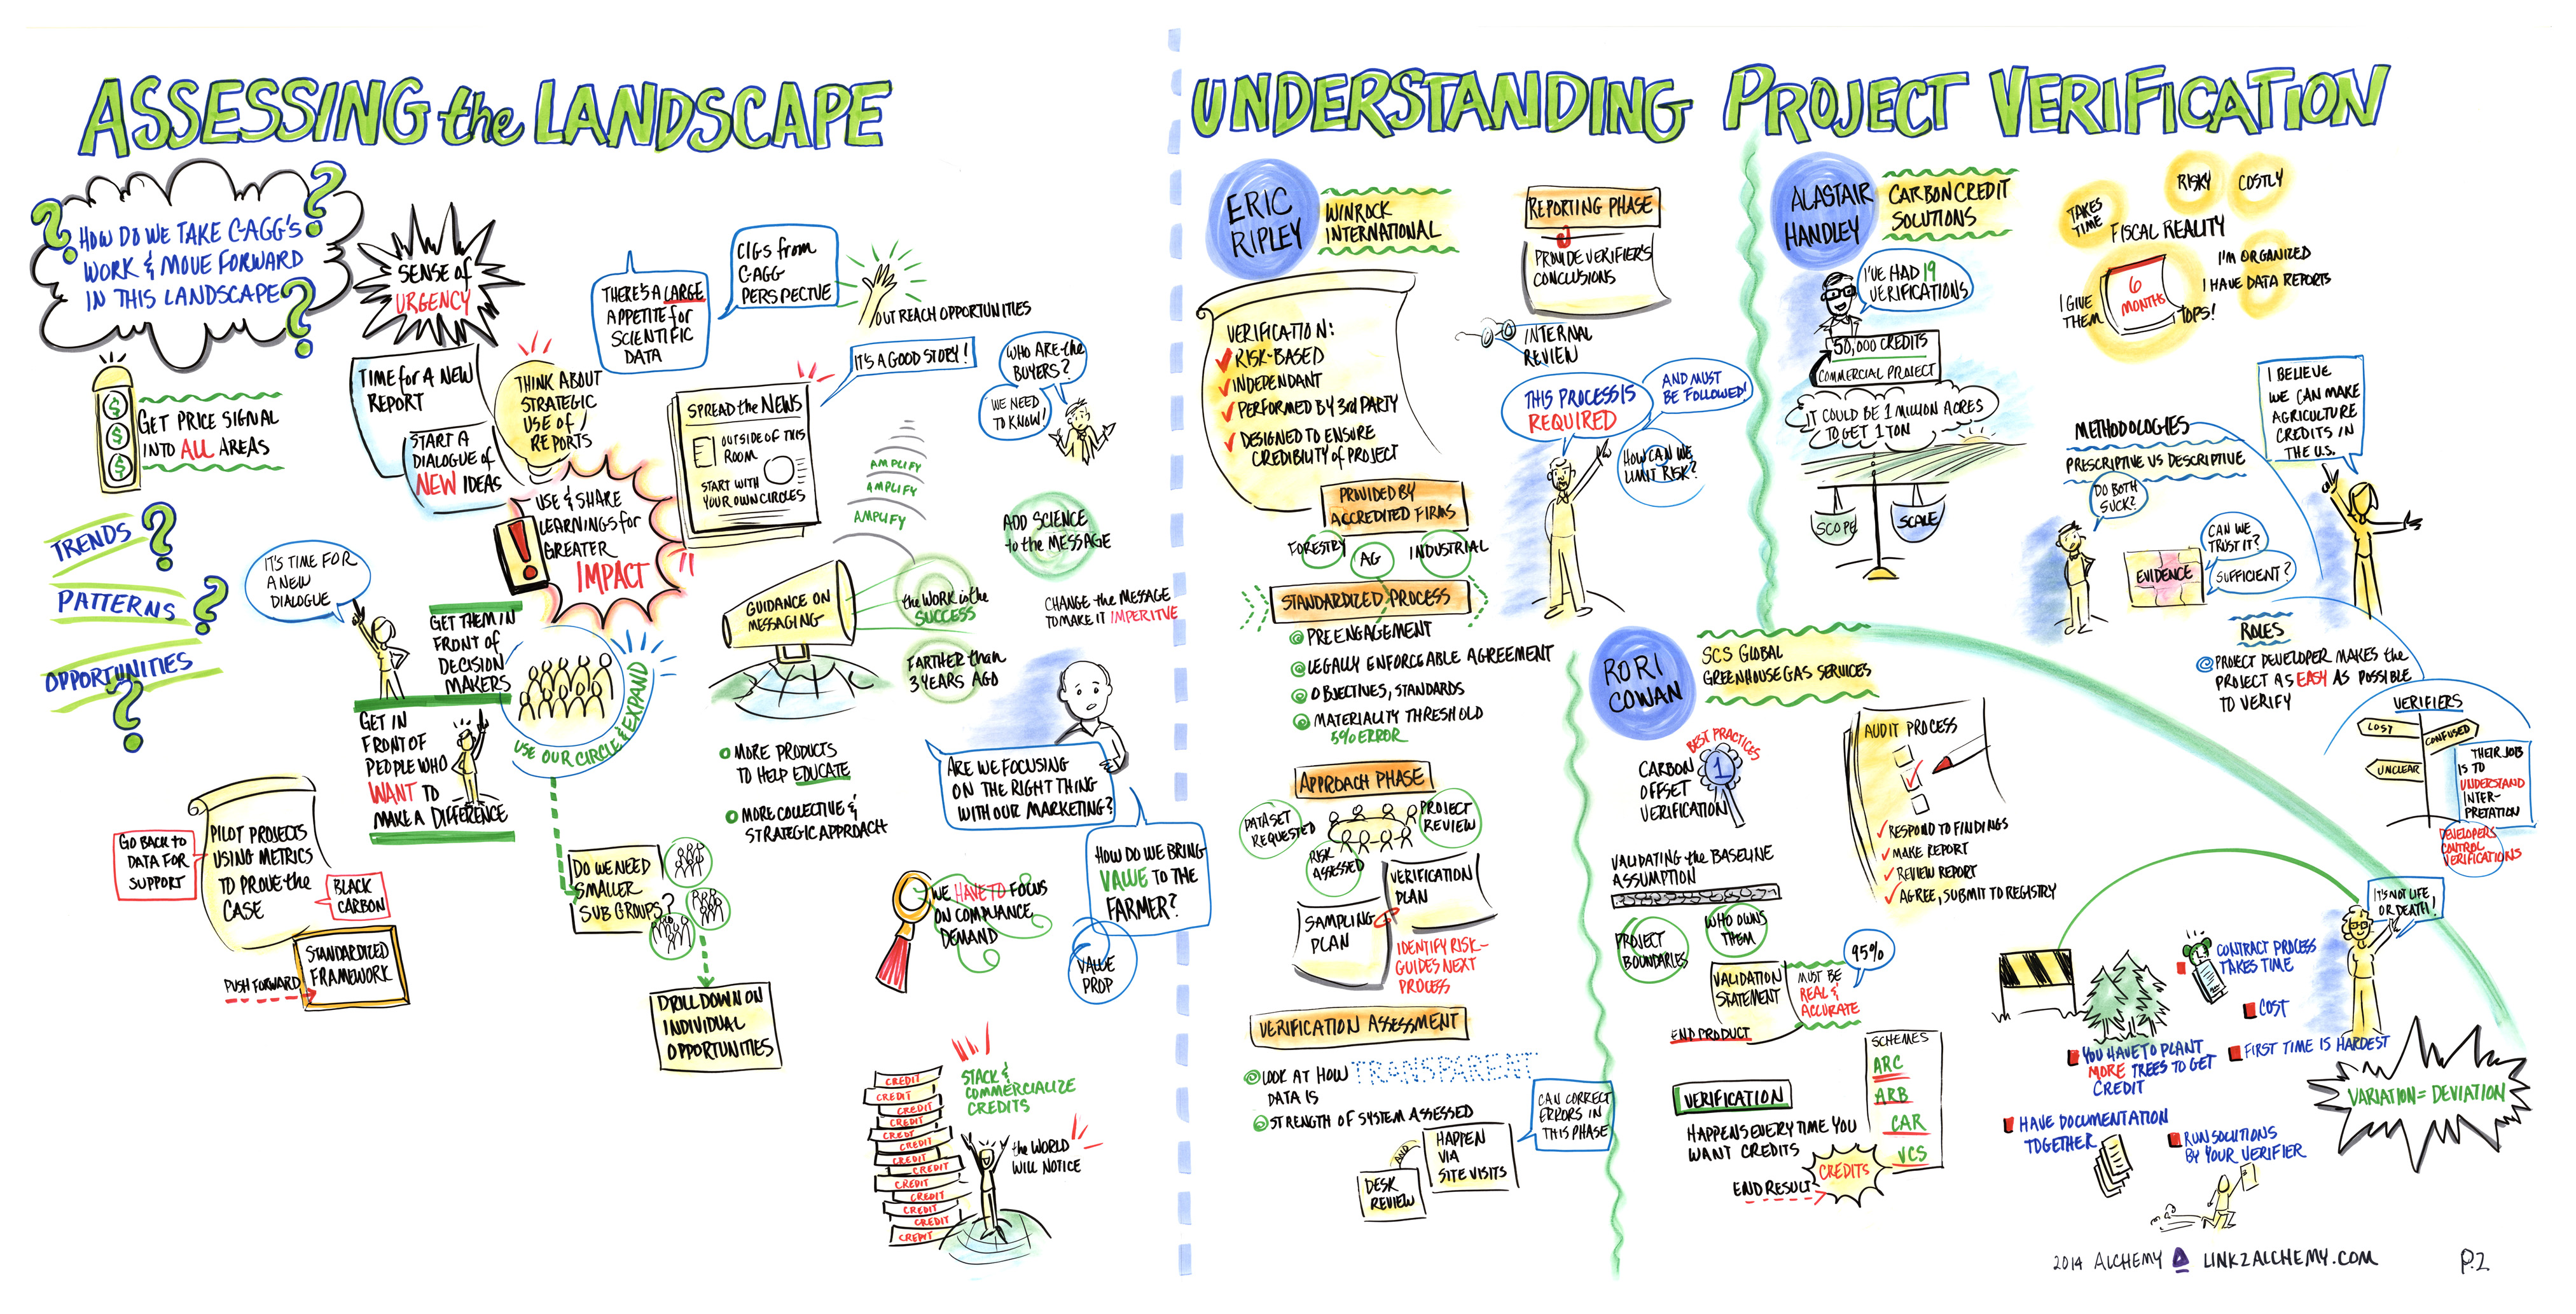 ASSESSING the LANDSCAPE
HOW DO WE TAKE C-AGG'S
WORK & MOVE FORWARD
IN THIS LANDSCAPE
? ? ?
SENSE of
URGENCY
GET PRICE SIGNAL
INTO ALL AREAS
$
$
$
TIME for A NEW
REPORT
START A
DIALOGUE of
NEW IDEAS
THINK ABOUT
STRATEGIC
USE OF
REPORTS
THERE'S A LARGE
APPETITE for
SCIENTIFIC
DATA
CIGS from
C-AGG
PERSPECTVE
OUT REACH OPPORTUNITIES
IT'S A GOOD STORY!
WHO ARE the
BUYERS?
WE NEED
TO KNOW!
SPREAD the NEWS
OUTSIDE OF THIS
ROOM
START WITH
YOUR OWN CIRCLES
AMPLIFY
AMPLIFY
AMPLIFY
USE & SHARE
LEARNINGS for
GREATER
IMPACT
!
ADD SCIENCE
to the MESSAGE
TRENDS ?
PATTERNS ?
OPPORTUNITIES
?
IT'S TIME FOR
A NEW
DIALOGUE
GET THEM IN
FRONT of
DECISION
MAKERS
GET IN
FRONT OF
PEOPLE WHO
WANT TO
MAKE A DIFFERENCE
USE OUR CIRCLE & EXPAND
GUIDANCE ON
MESSAGING
the WORK is the
SUCCESS
CHANGE the MESSAGE
TO MAKE IT IMPERITVE
FARTHER than
3 YEARS AGO
MORE PRODUCTS
TO HELP EDUCATE
MORE COLLECTIVE &
STRATEGIC APPROACH
ARE WE FOCUSING
ON THE RIGHT THING
WITH OUR MARKETING?
HOW DO WE BRING
VALUE TO THE
FARMER?
VALUE
PROP
GO BACK TO
DATA FOR
SUPPORT
PILOT PROJECTS
USING METRICS
TO PROVE the
CASE
BLACK
CARBON
PUSH FORWARD
STANDARDIZED
FRAMEWORK
DO WE NEED
SMALLER
SUB GROUPS?
DRILL DOWN ON
INDIVIDUAL
OPPORTUNITIES
WE HAVE TO FOCUS
ON COMPLIANCE
DEMAND
CREDIT
CREDIT
CREDIT
CREDIT
CREDIT
CREDIT
CREDIT
CREDIT
CREDIT
CREDIT
CREDIT
CREDIT
CREDIT
STACK &
COMMERCIALIZE
CREDITS
the WORLD
WILL NOTICE
UNDERSTANDING PROJECT VERIFICATION
ERIC
RIPLEY
WINROCK
INTERNATIONAL
VERIFICATION:
RISK-BASED
INDEPENDANT
PERFORMED BY 3rd PARTY
DESIGNED TO ENSURE
CREDIBILITY of PROJECT
REPORTING PHASE
PROVIDE VERIFIER'S
CONCLUSIONS
INTERNAL
REVIEW
THIS PROCESS IS
REQUIRED
AND MUST
BE FOLLOWED!
HOW CAN WE
LIMIT RISK?
PROVIDED BY
ACCREDITED FIRMS
FORESTRY
AG
INDUSTRIAL
STANDARDIZED PROCESS
PREENGAGEMENT
LEGALLY ENFORCEABLE AGREEMENT
OBJECTIVES, STANDARDS
MATERIALITY THRESHOLD
5% ERROR
APPROACH PHASE
DATASET
REQUESTED
PROJECT
REVIEW
RISK
ASSESSED
VERIFICATION
PLAN
SAMPLING
PLAN
IDENTIFY RISK-
GUIDES NEXT
PROCESS
VERIFICATION ASSESSMENT
LOOK AT HOW TRANSPARENT
DATA IS
STRENGTH OF SYSTEM ASSESSED
CAN CORRECT
ERRORS IN
THIS PHASE
DESK
REVIEW
AND
HAPPEN
VIA
SITE VISITS
ALASTAIR
HANDLEY
CARBON CREDIT
SOLUTIONS
I'VE HAD 19
VERIFICATIONS
50,000 CREDITS
COMMERCIAL PROJECT
IT COULD BE 1 MILLION ACRES
TO GET 1 TON
SCOPE
SCALE
TAKES
TIME
RISKY
COSTLY
FISCAL REALITY
I'M ORGANIZED
I HAVE DATA REPORTS
I GIVE
THEM
6
MONTHS
TOPS!
METHODOLOGIES
PRESCRIPTIVE VS DESCRIPTIVE
DO BOTH
SUCK?
EVIDENCE
CAN WE
TRUST IT?
SUFFICIENT?
I BELIEVE
WE CAN MAKE
AGRICULTURE
CREDITS IN
THE U.S.
ROLES
PROJECT DEVELOPER MAKES the
PROJECT AS EASY AS POSSIBLE
TO VERIFY
VERIFIERS
LOST
CONFUSED
UNCLEAR
THEIR JOB
IS TO
UNDERSTAND
INTER-
PRETATION
DEVELOPERS
CONTROL
VERIFICATIONS
RORI
COWAN
SCS GLOBAL
GREENHOUSE GAS SERVICES
BEST PRACTICES
1
CARBON
OFFSET
VERIFICATION
AUDIT PROCESS
RESPOND TO FINDINGS
MAKE REPORT
REVIEW REPORT
AGREE, SUBMIT TO REGISTRY
VALIDATING the BASELINE
ASSUMPTION
PROJECT
BOUNDARIES
WHO OWNS
THEM
VALIDATION
STATEMENT
END PRODUCT
MUST BE
REAL &
ACCURATE
95%
SCHEMES
ARC
ARB
CAR
VCS
VERIFICATION
HAPPENS EVERY TIME YOU
WANT CREDITS
END RESULT
CREDITS
IT'S NOT LIFE
OR DEATH!
CONTRACT PROCESS
TAKES TIME
COST
FIRST TIME IS HARDEST
YOU HAVE TO PLANT
MORE TREES TO GET
CREDIT
HAVE DOCUMENTATION
TOGETHER
RUN SOLUTIONS
BY YOUR VERIFIER
VARIATION = DEVIATION
2014 ALCHEMY LINK2ALCHEMY.COM
P.2